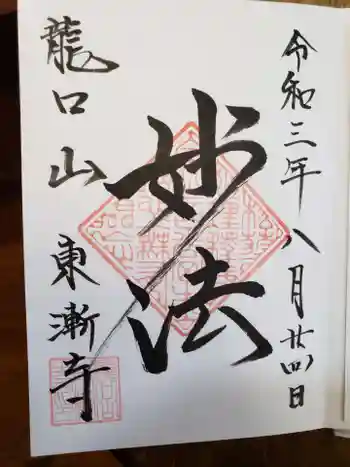 令和三年八月廿四日
妙法
龍口山 東漸寺